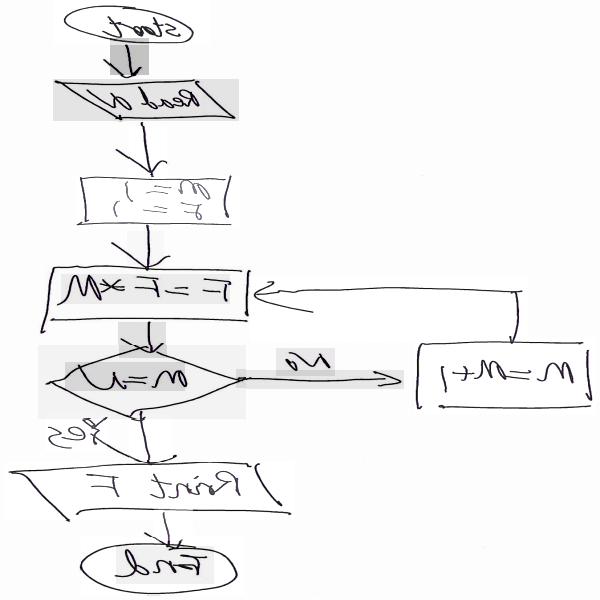 Start
Read N
M=1
F=1
F=F*M
M=N
No
M=M+1
Yes
Print F
End